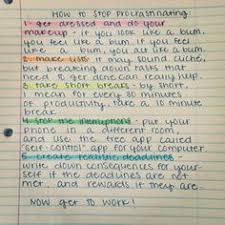 HOW TO STOP PROCRASTINATING:
1. get dressed and do your
makeup - if you look like a bum,
you feel like a bum. if you feel
like a bum, you act like a bum.
2. make lists - it may sound cliche,
but breaking down tasks that
need to get done can really help.
3. take short breaks - by short,
I mean for every 30 minutes
of productivity, take a 10 minute
break.
4. stop the interruptions - put your
phone in a different room,
and use the free app called
"self-control" app for your computer.
5. create realistic deadlines -
write down consequences for your-
self if the deadlines are not
met, and rewards if they are.
NOW get to work!